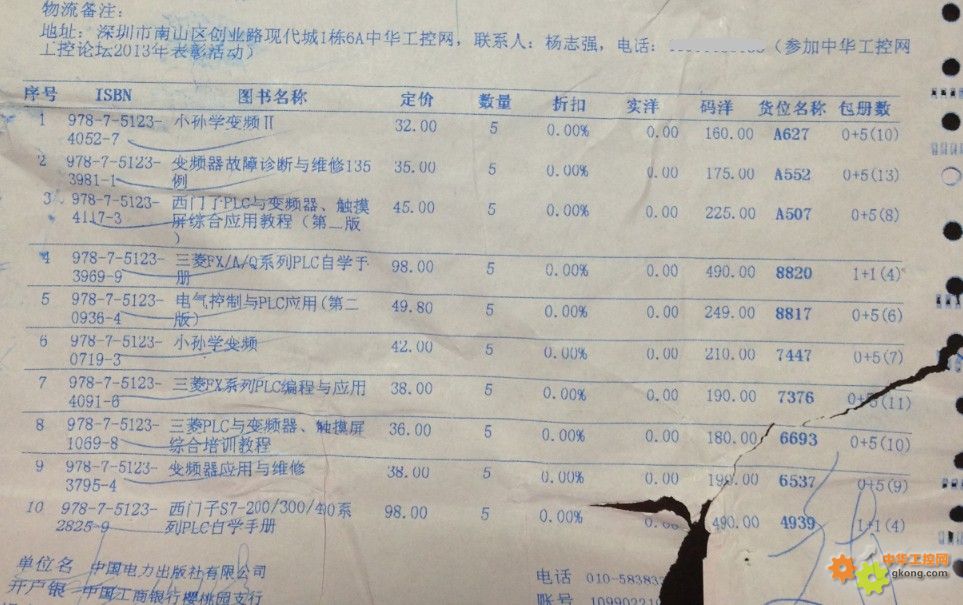 物流备注:
地址: 深圳市南山区创业路现代城1栋6A中华工控网, 联系人: 杨志强, 电话: （参加中华工控网
工控论坛2013年表彰活动）
序号 ISBN 图书名称 定价 数量 折扣 实洋 码洋 货位名称 包册数
1 978-7-5123- 小孙学变频Ⅱ 32.00 5 0.00% 0.00 160.00 A627 0+5(10)
4052-7
2 978-7-5123- 变频器故障诊断与维修135 35.00 5 0.00% 0.00 175.00 A552 0+5(13)
3981-1 例
3 978-7-5123- 西门子PLC与变频器、触摸 45.00 5 0.00% 0.00 225.00 A507 0+5(8)
4117-3 屏综合应用教程（第二版
）
4 978-7-5123- 三菱FX/A/Q系列PLC自学手 98.00 5 0.00% 0.00 490.00 8820 1+1(4)
3969-9 册
5 978-7-5123- 电气控制与PLC应用(第二 49.80 5 0.00% 0.00 249.00 8817 0+5(6)
0936-4 版)
6 978-7-5123- 小孙学变频 42.00 5 0.00% 0.00 210.00 7447 0+5(7)
0719-3
7 978-7-5123- 三菱FX系列PLC编程与应用 38.00 5 0.00% 0.00 190.00 7376 0+5(11)
4091-6
8 978-7-5123- 三菱PLC与变频器、触摸屏 36.00 5 0.00% 0.00 180.00 6693 0+5(10)
1069-8 综合培训教程
9 978-7-5123- 变频器应用与维修 38.00 5 0.00% 0.00 190.00 6537 0+5(9)
3795-4
10 978-7-5123- 西门子S7-200/300/400系 98.00 5 0.00% 490.00 4939 1+1(4)
2825-9 列PLC自学手册
单位名 中国电力出版社有限公司 电话 010-58383
开户银 中国工商银行樱桃园支行 账号
中华工控网
gkong.com